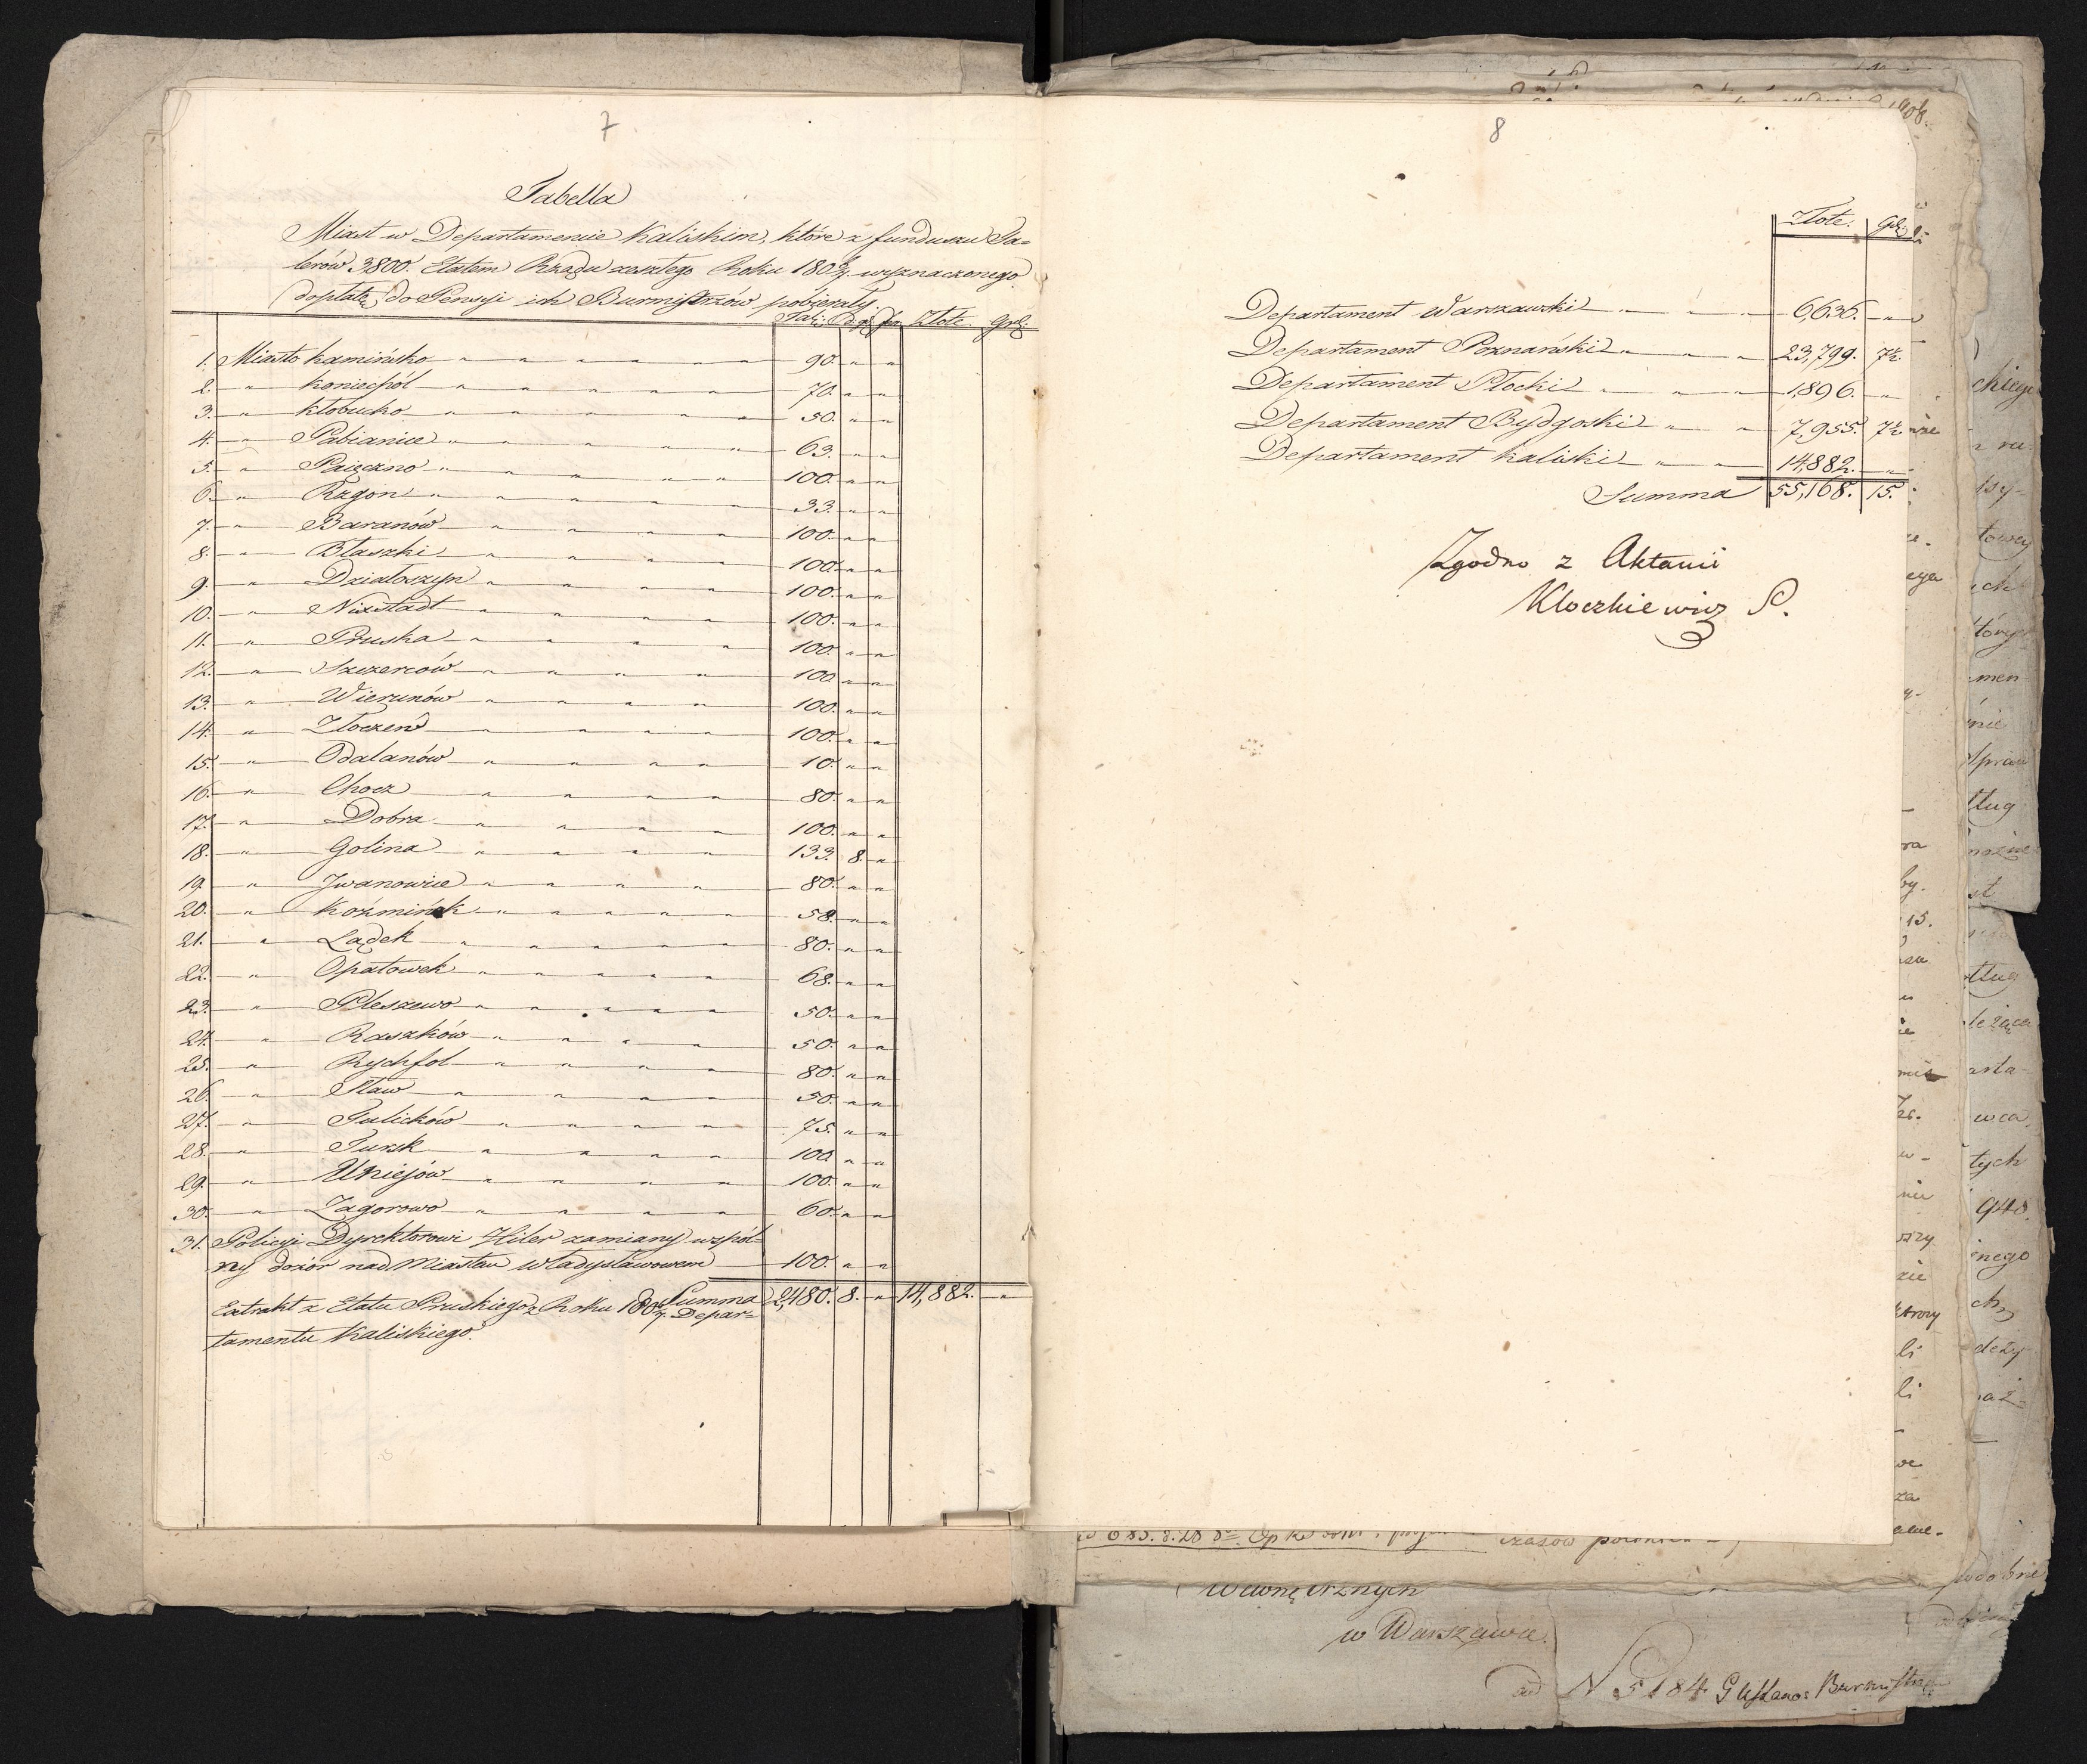 7
Tabella
Miast w Departamencie Kaliskim, które z funduszu Ta=
lerów 3,800. Etatem Rządu zeszłego Roku 180 6/7. wyznaczonego
dopłatę do Pensyi ich Burmistrzów pobierały.
Tal: d.gr. fen. Złote. Gr:
1. Miasto Kamińsko 90. " "
2. " Koniecpól 70. " "
3. " Kłobucko 50. " "
4. " Pabianice 63. " "
5. " Paięczno 100. " "
6. " Rzgon 33. " "
7. " Baranów 100. " "
8. " Błaszki 100. " "
9. " Działoszyn 100. " "
10. " Nixstadt 100. " "
11. " Pruska 100. " "
12. " Szczerców 100. " "
13. " Wierunów 100. " "
14. " Złoczew 100. " "
15. " Odalanów 10. " "
16. " Chocz 80. " "
17. " Dobra 100. " "
18. " Golina 133. 8. "
19. " Jwanowice 80. " "
20. " Koźminek 58. " "
21. " Lądek 80. " "
22. " Opatowek 68. " "
23. " Pleszewo 50. " "
24. " Raszków 50. " "
25. " Rychfol 80. " "
26. " Staw 50. " "
27. " Tulicków 75. " "
28. " Tursk 100. " "
29. " Uniejów 100. " "
30. " Zagorowo 60. " "
31. Policyi Dyrektorowi Hiler zamiany wspól=
ny dozór nad Miastem Władysławowem 100. " "
Summa 2,480. 8. " 14,882. "
Extrakt z Etatu Pruskiego z Roku 180 6/7. Depar=
tamentu Kaliskiego.
8
Złote. Gr:
Departament Warszawski 6,636. "
Departament Poznański 23,799. 7½.
Departament Płocki 1,896. "
Departament Bydgoski 7,955. 7½
Departament Kaliski 14,882. "
Summa 55,168. 15.
Zgodno z Aktami
Kloczkiewicz S.
Wewnętrznych
w Warszawie.
ad N 5184